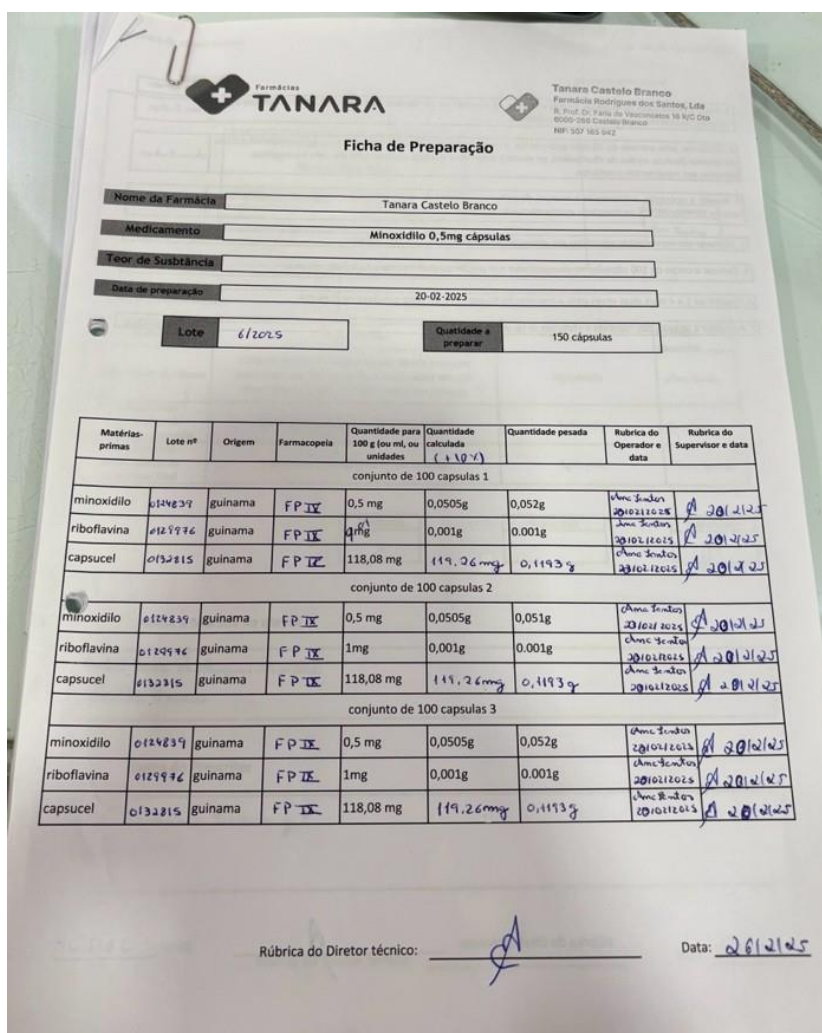 Farmácias
TANARA
Tanara Castelo Branco
Farmácia Rodrigues dos Santos, Lda
R. Prof. Dr. Faria de Vasconcelos 16 R/C Dta
6000-266 Castelo Branco
NIF: 507 165 642
Ficha de Preparação
Nome da Farmácia Tanara Castelo Branco
Medicamento Minoxidilo 0,5mg cápsulas
Teor de Susbtância
Data de preparação 20-02-2025
Lote 6/2025 Quatidade a preparar 150 cápsulas
Matérias-primas Lote nº Origem Farmacopeia Quantidade para 100 g (ou ml, ou unidades Quantidade calculada (+1%) Quantidade pesada Rubrica do Operador e data Rubrica do Supervisor e data
conjunto de 100 capsulas 1
minoxidilo 0124839 guinama FP IX 0,5 mg 0,0505g 0,052g 20/02/2025 20/2/25
riboflavina 0129976 guinama FP IX 1mg 0,001g 0.001g 20/02/2025 20/2/25
capsucel 0132815 guinama FP IX 118,08 mg 119.26mg 0,1193g 20/02/2025 20/2/25
conjunto de 100 capsulas 2
minoxidilo 0124839 guinama FP IX 0,5 mg 0,0505g 0,051g 20/02/2025 20/2/25
riboflavina 0129976 guinama FP IX 1mg 0,001g 0.001g 20/02/2025 20/2/25
capsucel 0132815 guinama FP IX 118,08 mg 119.26mg 0,1193g 20/02/2025 20/2/25
conjunto de 100 capsulas 3
minoxidilo 0124839 guinama FP IX 0,5 mg 0,0505g 0,052g 20/02/2025 20/2/25
riboflavina 0129976 guinama FP IX 1mg 0,001g 0.001g 20/02/2025 20/2/25
capsucel 0132815 guinama FP IX 118,08 mg 119.26mg 0,1193g 20/02/2025 20/2/25
Rúbrica do Diretor técnico: Data: 26/2/25